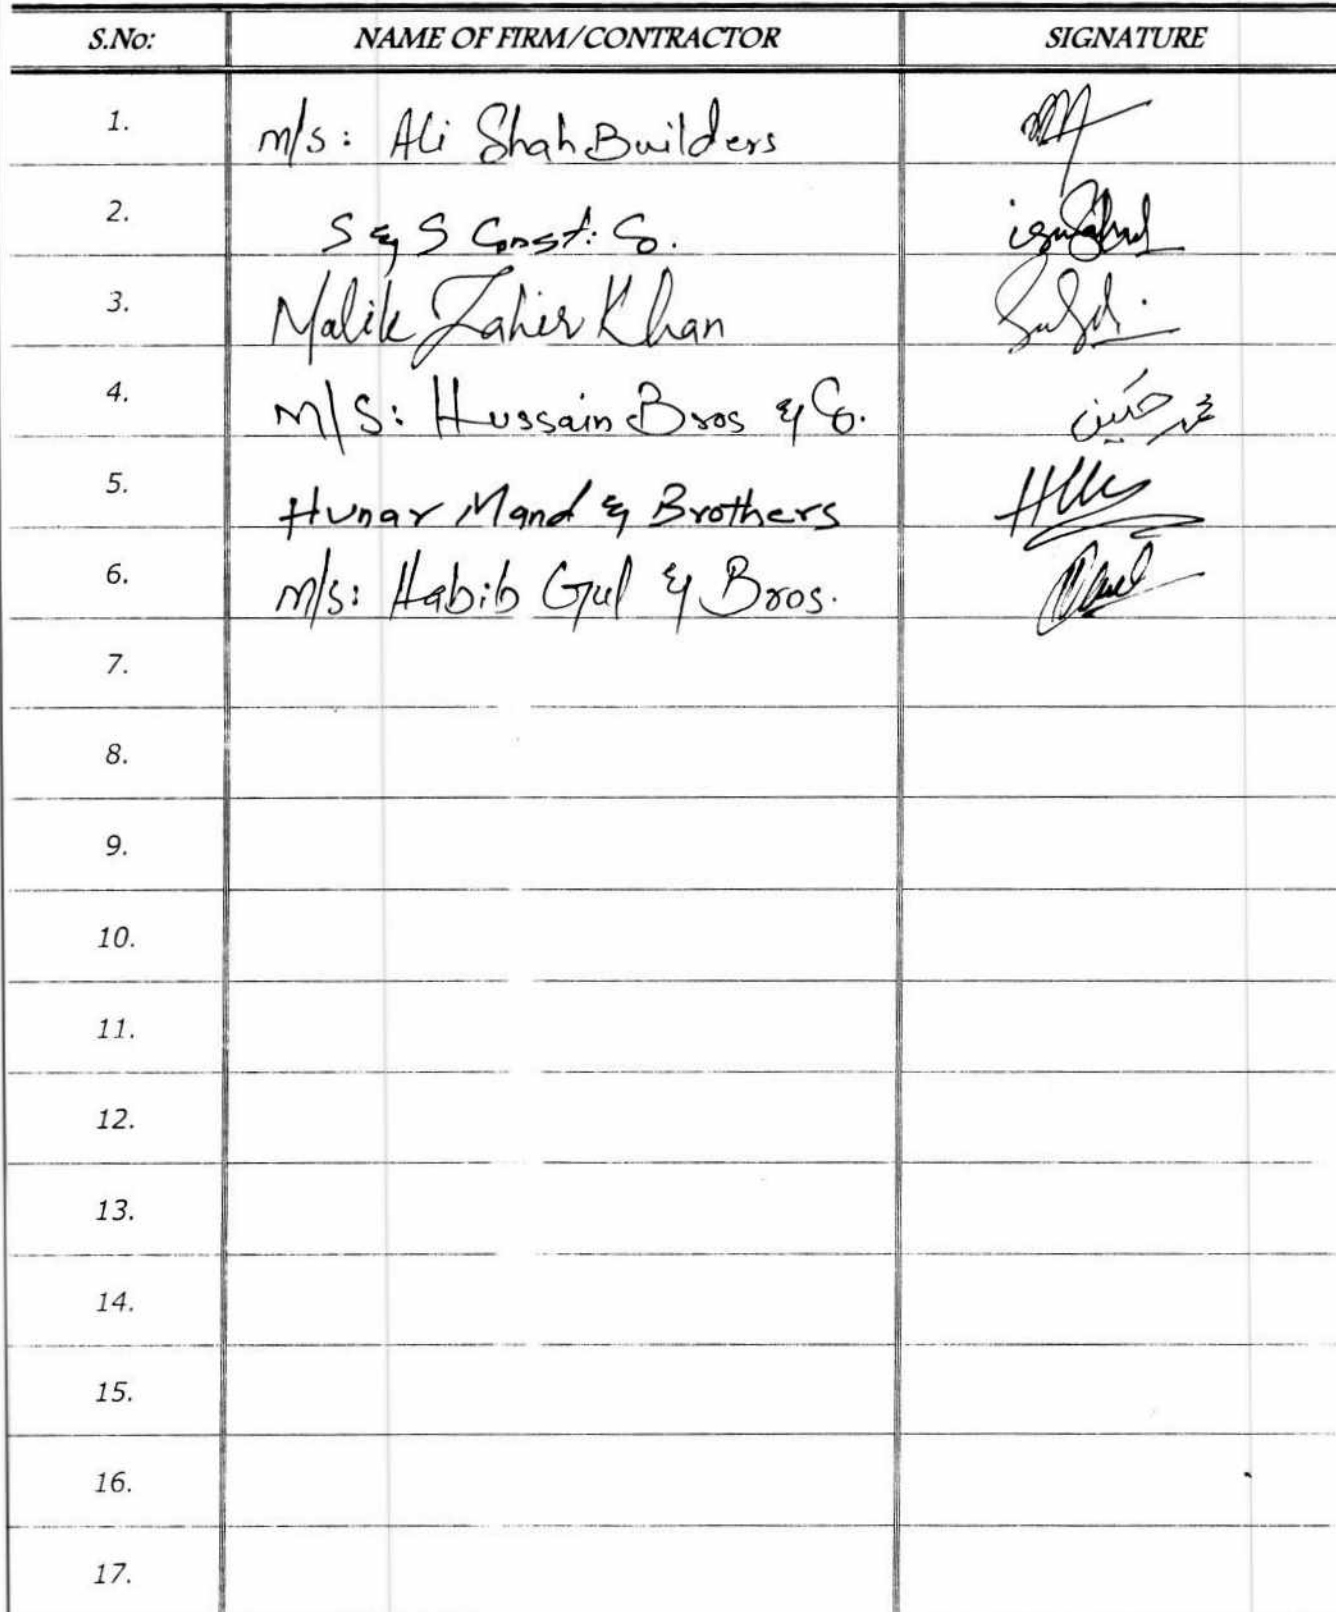 S.No: NAME OF FIRM/CONTRACTOR SIGNATURE
1. m/s: Ali Shah Builders
2. S & S Const: Co.
3. Malik Zahir Khan
4. M/S: Hussain Bros & Co. محمد حسین
5. Hunar Mand & Brothers
6. m/s: Habib Gul & Bros.
7.
8.
9.
10.
11.
12.
13.
14.
15.
16.
17.